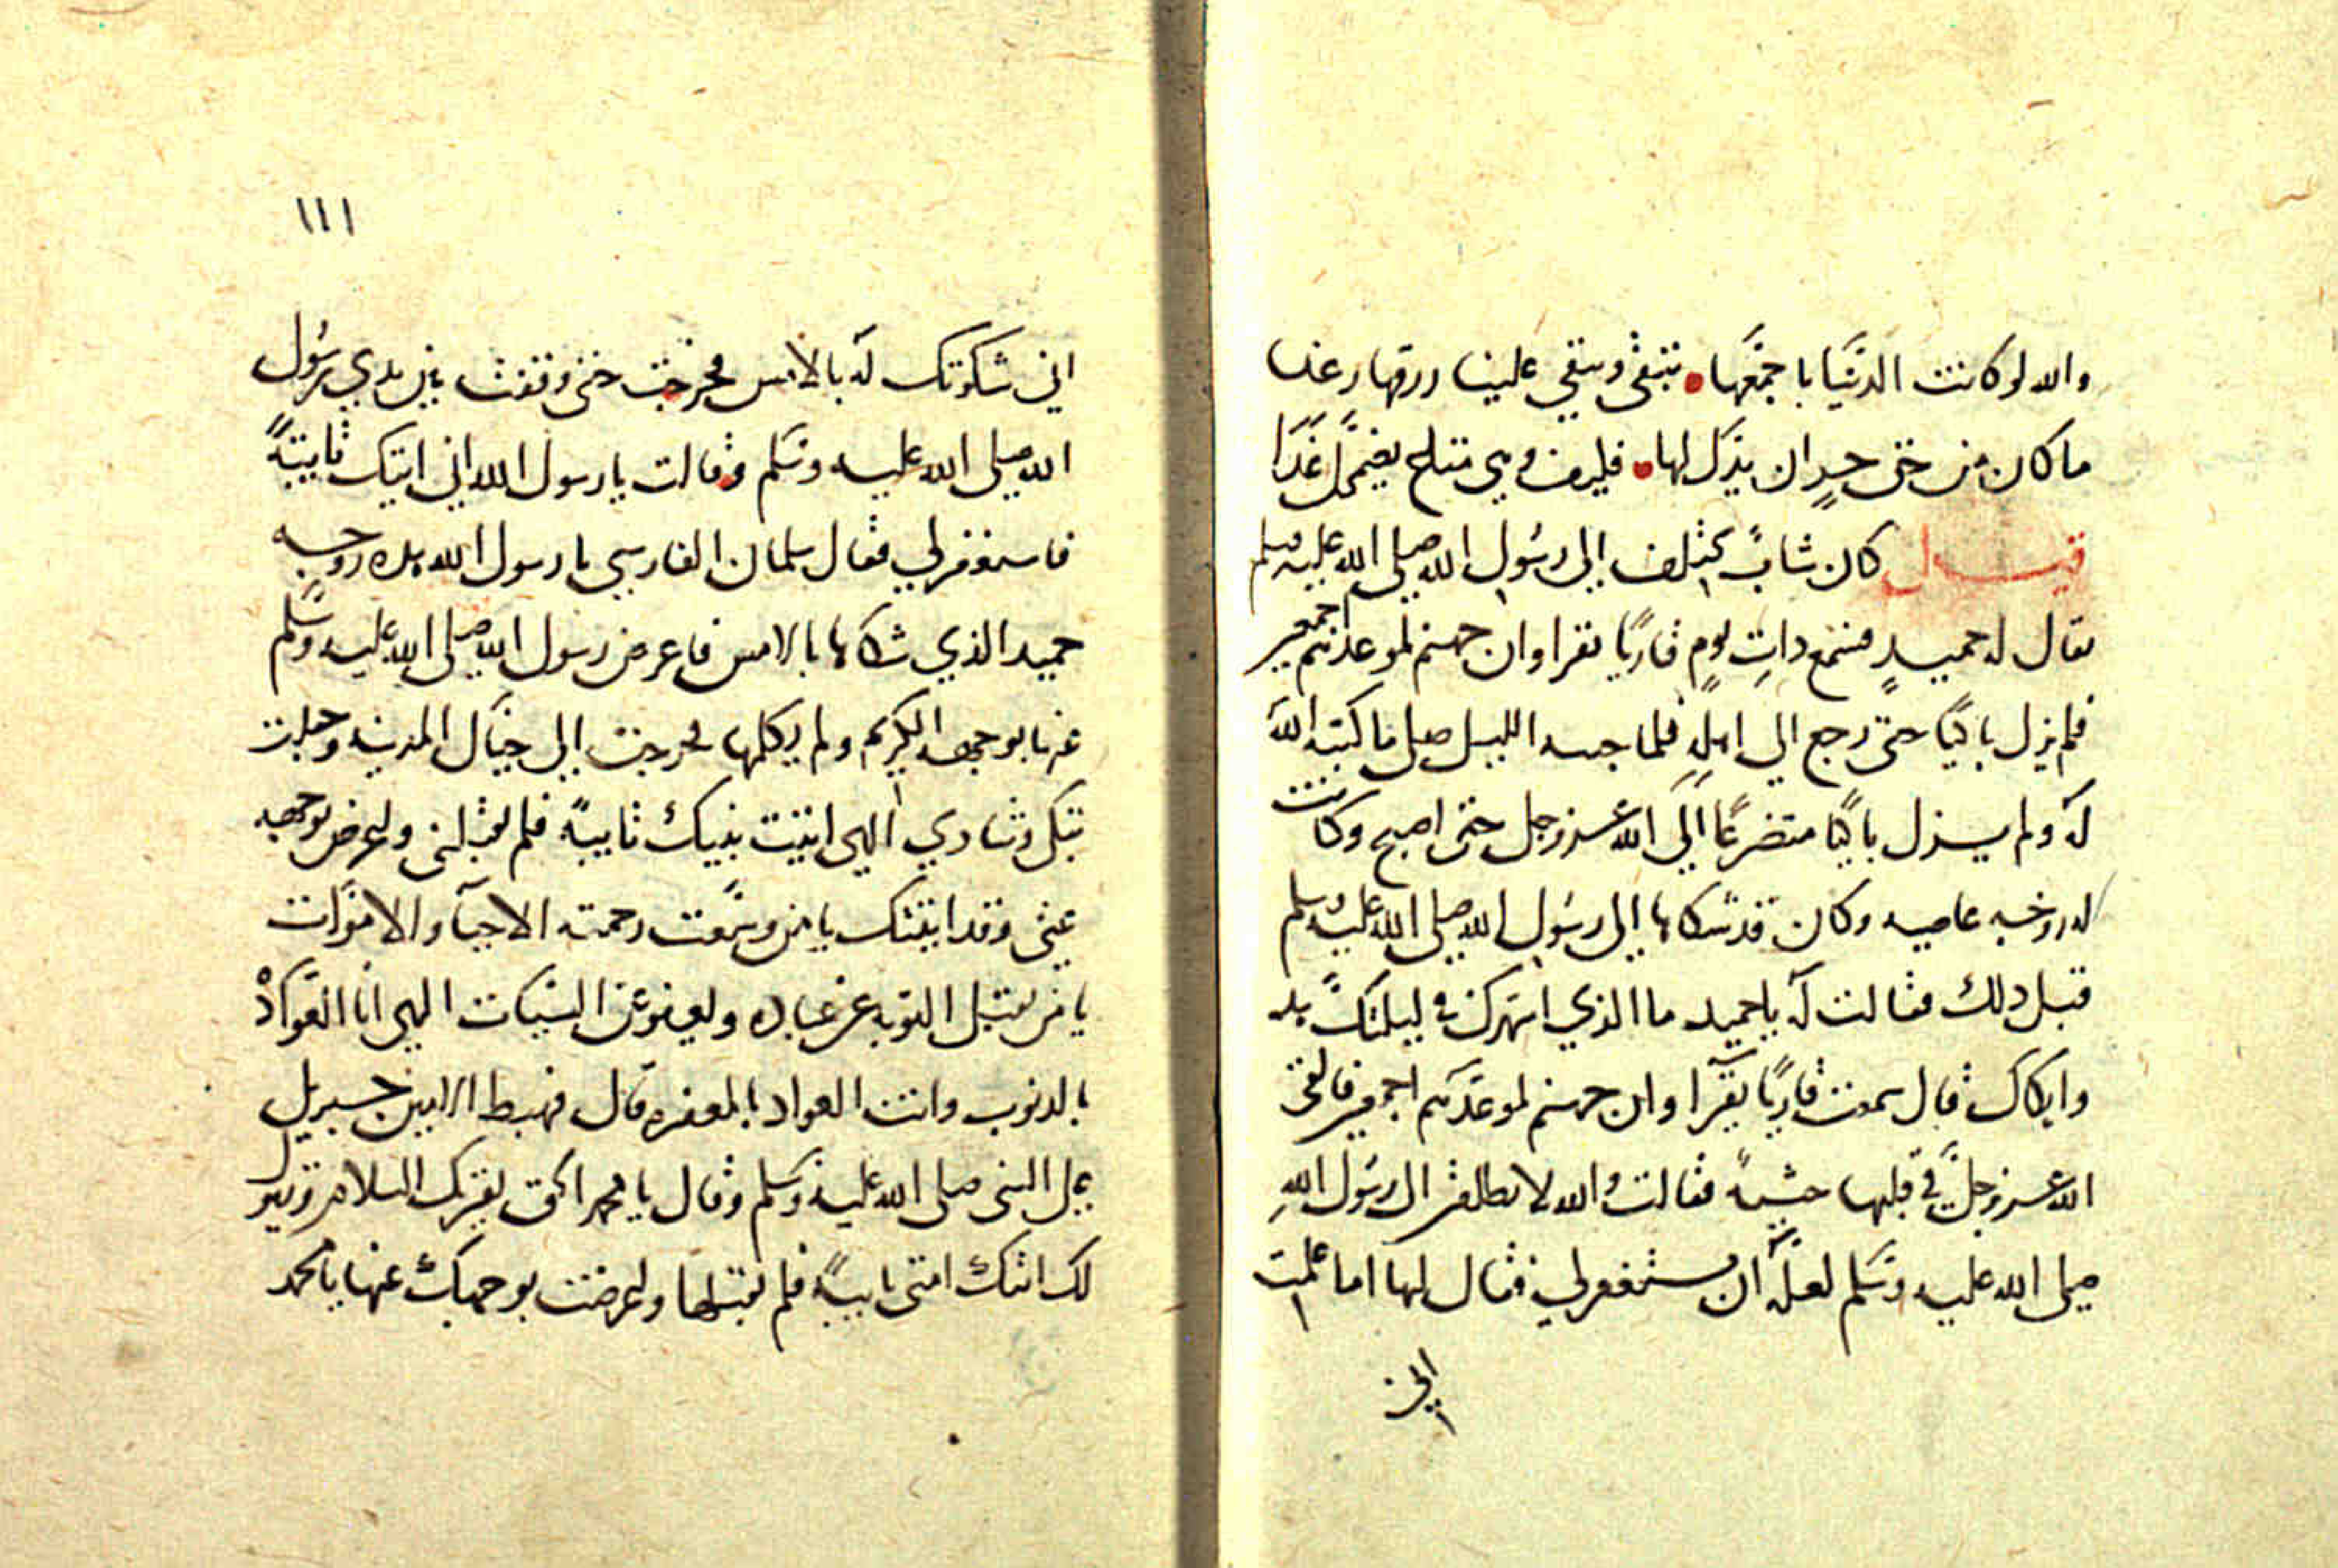 والله لو كانت الدنيا باجمعها تبقى وتبقي علينا رزقها رغدا
ما كان من حق حر ان يذل لها فليف وهي متاع يضمحل غدا
قيل كان شاب يختلف الى رسول الله صلى الله عليه وسلم
يقال له حميد فسمع ذات يوم قاريا يقرا وان جهنم لموعدهم اجمعين
فلم يزل باكيا حتى رجع الي اهله فلما جنه الليل صلى ما كتبه الله
له ولم يزل باكيا متضرعا الي الله عز وجل حتى اصبح وكانت
له زوجه عاصيه وكان قد شكاها الى رسول الله صلى الله عليه وسلم
قبل ذلك فقالت له يا حميد ما الذي اسهرك في ليلتك
وابكاك قال سمعت قاريا يقرا وان جهنم لموعدهم اجمعين فالقى
الله عز وجل في قلبها خشية فقالت والله لا الى رسول الله
صلى الله عليه وسلم لعله ان يستغفر لي فقال لها اما علمت
اني
١١١
اني شكوتك له بالامس فخرجت حتى وقفت بين يدي رسول
الله صلى الله عليه وسلم وقالت يا رسول الله اني اتيتك تايبة
فاستغفر لي فقال سلمان الفارسي يا رسول الله هذه زوجه
حميد الذي شكاها بالامس فاعرض رسول الله صلى الله عليه وسلم
عنها بوجهه الكريم ولم يكلمها فخرجت الى جبال المدينه وجعلت
تبكي وتنادي الهي اتيت نبيك تايبة فلم يقبلني واعرض بوجهه
عني وقد اتيتك يا من وسعت رحمته الاحيآ والاموات
يا من يقبل التوبه عن عباده ويعفو عن السيات الهي انا العواد
بالذنوب وانت العواد بالمغفره قال فهبط الامين جبريل
على النبي صلى الله عليه وسلم وقال يا محمد الحق يقريك السلام ويقول
لك اتتك امتي تايبة فلم تقبلها واعرضت بوجهك عنها يا محمد